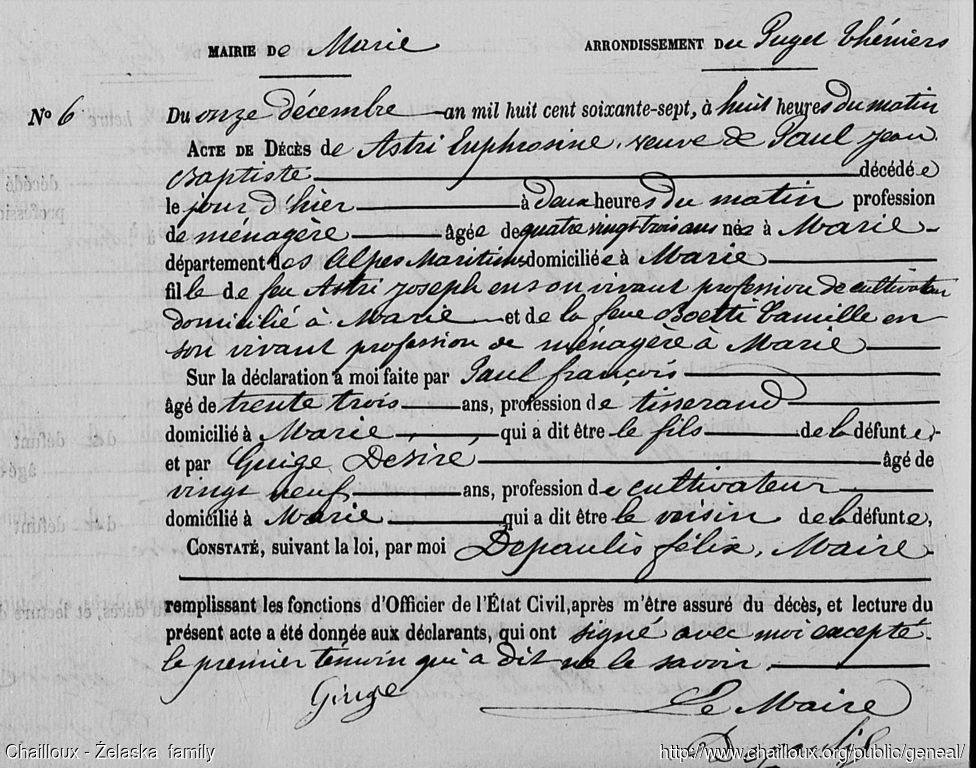 MAIRIE De Marie ARRONDISSEMENT Du Puget Théniers
No 6 Du onze décembre an mil huit cent soixante-sept, à huit heures du matin
ACTE DE DÉCÈS de Astri Euphrosine, veuve de Paul Jean
Baptiste décédée
le jour d'hier à deux heures du matin profession
de ménagère âgée de quatre vingt trois ans née à Marie
département des Alpes Maritimes domiciliée à Marie
fille de feu Astri Joseph en son vivant profession de cultivateur
domicilié à Marie et de la feue Boetti Camille en
son vivant profession de ménagère à Marie
Sur la déclaration à moi faite par Paul françois
âgé de trente trois ans, profession de tisserand
domicilié à Marie, qui a dit être le fils de la défunte
et par Guige Desiré âgé de
vingt neuf ans, profession de cultivateur
domicilié à Marie qui a dit être le voisin de la défunte,
CONSTATÉ, suivant la loi, par moi Depaulis félix, Maire
remplissant les fonctions d'Officier de l'État Civil, après m'être assuré du décès, et lecture du
présent acte a été donnée aux déclarants, qui ont signé avec moi excepté
le premier temoin qui a dit ne le savoir.
Guige Le Maire
Chailloux - Żelaska family http://www.chailloux.org/public/geneal/